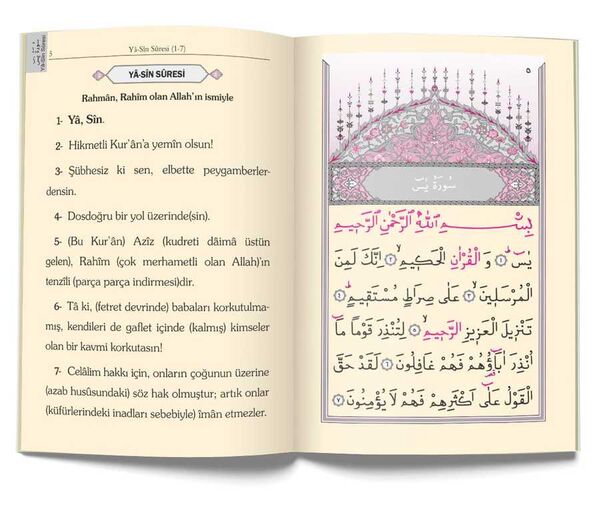 سورة يس
Yâ-Sîn Sûresi
5
Yâ-Sîn Sûresi (1-7)
YÂ-SİN SÛRESİ
Rahmân, Rahîm olan Allah'ın ismiyle
1- Yâ, Sîn.
2- Hikmetli Kur'ân'a yemîn olsun!
3- Şübhesiz ki sen, elbette peygamberler-
densin.
4- Dosdoğru bir yol üzerinde(sin).
5- (Bu Kur'ân) Azîz (kudreti dâimâ üstün
gelen), Rahîm (çok merhametli olan Allah)'ın
tenzîli (parça parça indirmesi)dir.
6- Tâ ki, (fetret devrinde) babaları korkutulma-
mış, kendileri de gaflet içinde (kalmış) kimseler
olan bir kavmi korkutasın!
7- Celâlim hakkı için, onların çoğunun üzerine
(azab husûsundaki) söz hak olmuştur; artık onlar
(küfürlerindeki inadları sebebiyle) îmân etmezler.
٥
سُورَةُ يٰسٓ
بِسْمِ اللّٰهِ الرَّحْمٰنِ الرَّحٖيمِ
يٰسٓ ﴿١﴾ وَ الْقُرْاٰنِ الْحَكٖيمِ ﴿٢﴾ اِنَّكَ لَمِنَ
الْمُرْسَلٖينَ ﴿٣﴾ عَلٰى صِرَاطٍ مُسْتَقٖيمٍ ﴿٤﴾
تَنْزٖيلَ الْعَزٖيزِ الرَّحٖيمِ ﴿٥﴾ لِتُنْذِرَ قَوْمًا مَٓا
اُنْذِرَ اٰبَٓاؤُهُمْ فَهُمْ غَافِلُونَ ﴿٦﴾ لَقَدْ حَقَّ
الْقَوْلُ عَلٰٓى اَكْثَرِهِمْ فَهُمْ لَا يُؤْمِنُونَ ﴿٧﴾